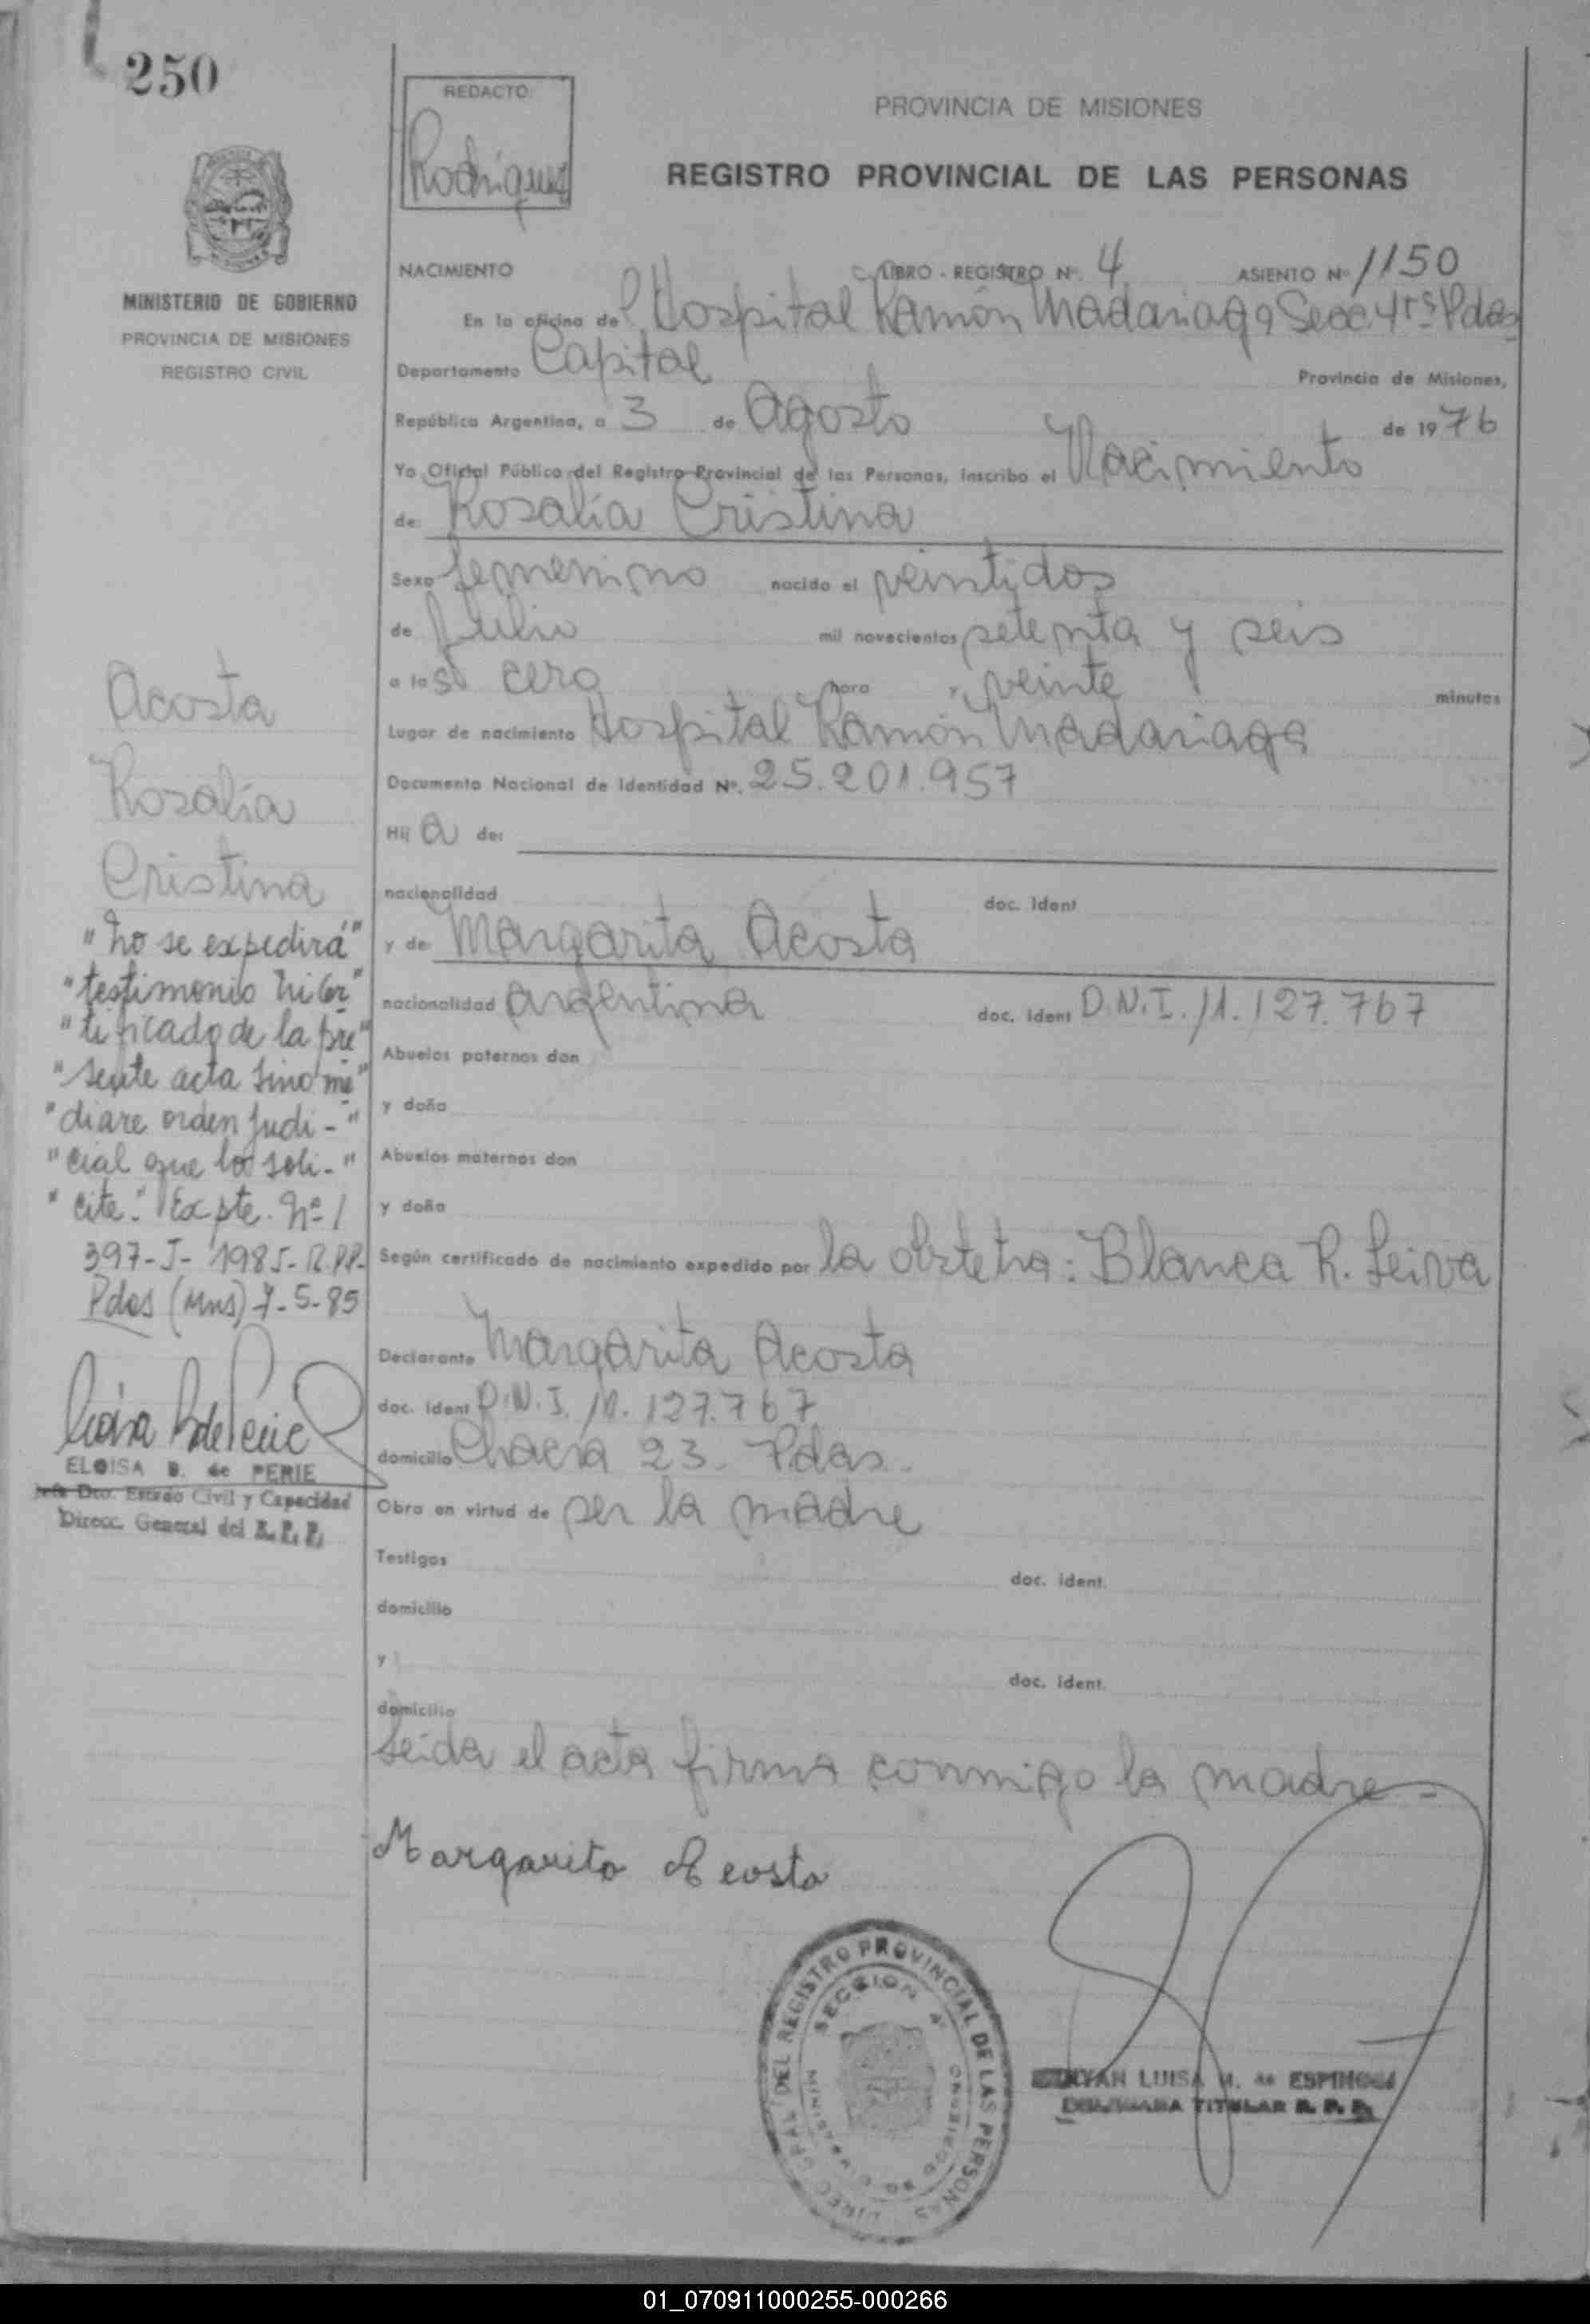 250
REDACTO:
Rodriguez
PROVINCIA DE MISIONES
REGISTRO PROVINCIAL DE LAS PERSONAS
MINISTERIO DE GOBIERNO
PROVINCIA DE MISIONES
REGISTRO CIVIL
NACIMIENTO LIBRO - REGISTRO Nº. 4 ASIENTO Nº 1150
En la oficina del Hospital Ramón Madariaga Secc. 4ta Pdas
Departamento Capital Provincia de Misiones,
República Argentina, a 3 de Agosto de 1976
Yo Oficial Público del Registro Provincial de las Personas, inscribo el Nacimiento
de: Rosalía Cristina
Sexo femenino nacido el veintidos
de Julio mil novecientos setenta y seis
a las cero hora y veinte minutos
Lugar de nacimiento Hospital Ramón Madariaga
Documento Nacional de Identidad Nº. 25.201.957
Hij a de:
nacionalidad doc. ident
y de Margarita Acosta
nacionalidad argentina doc. ident D.N.I. 11.127.767
Abuelos paternos don
y doña
Abuelos maternos don
y doña
Según certificado de nacimiento expedido por la obstetra: Blanca R. Leiva
Declarante Margarita Acosta
doc. ident D.N.I. 11.127.767
domicilio Chacra 23. Pdas.
Obra en virtud de ser la madre
Testigos doc. ident.
domicilio
y doc. ident.
domicilio
Leida el acta firma conmigo la madre -
Margarita Acosta
Acosta
Rosalía
Cristina
"No se expedirá"
"testimonio ni cer"
"tificado de la pre"
"sente acta sino me"
"diare orden judi-"
"cial que lo soli-"
"cite." Expte. Nº 1
397-J-1985-R.P.P.-
Pdas (Mns) 7-5-85
ELOISA B. de PERIE
Jefe Dto. Estado Civil y Capacidad
Direcc. General del R. P. P.
DIREC. GRAL. DEL REGISTRO PROVINCIAL DE LAS PERSONAS
SECCION 4ª
MINISTERIO DE GOBIERNO
LUISA M. de ESPINOSA
TITULAR R. P. P.
01_070911000255-000266